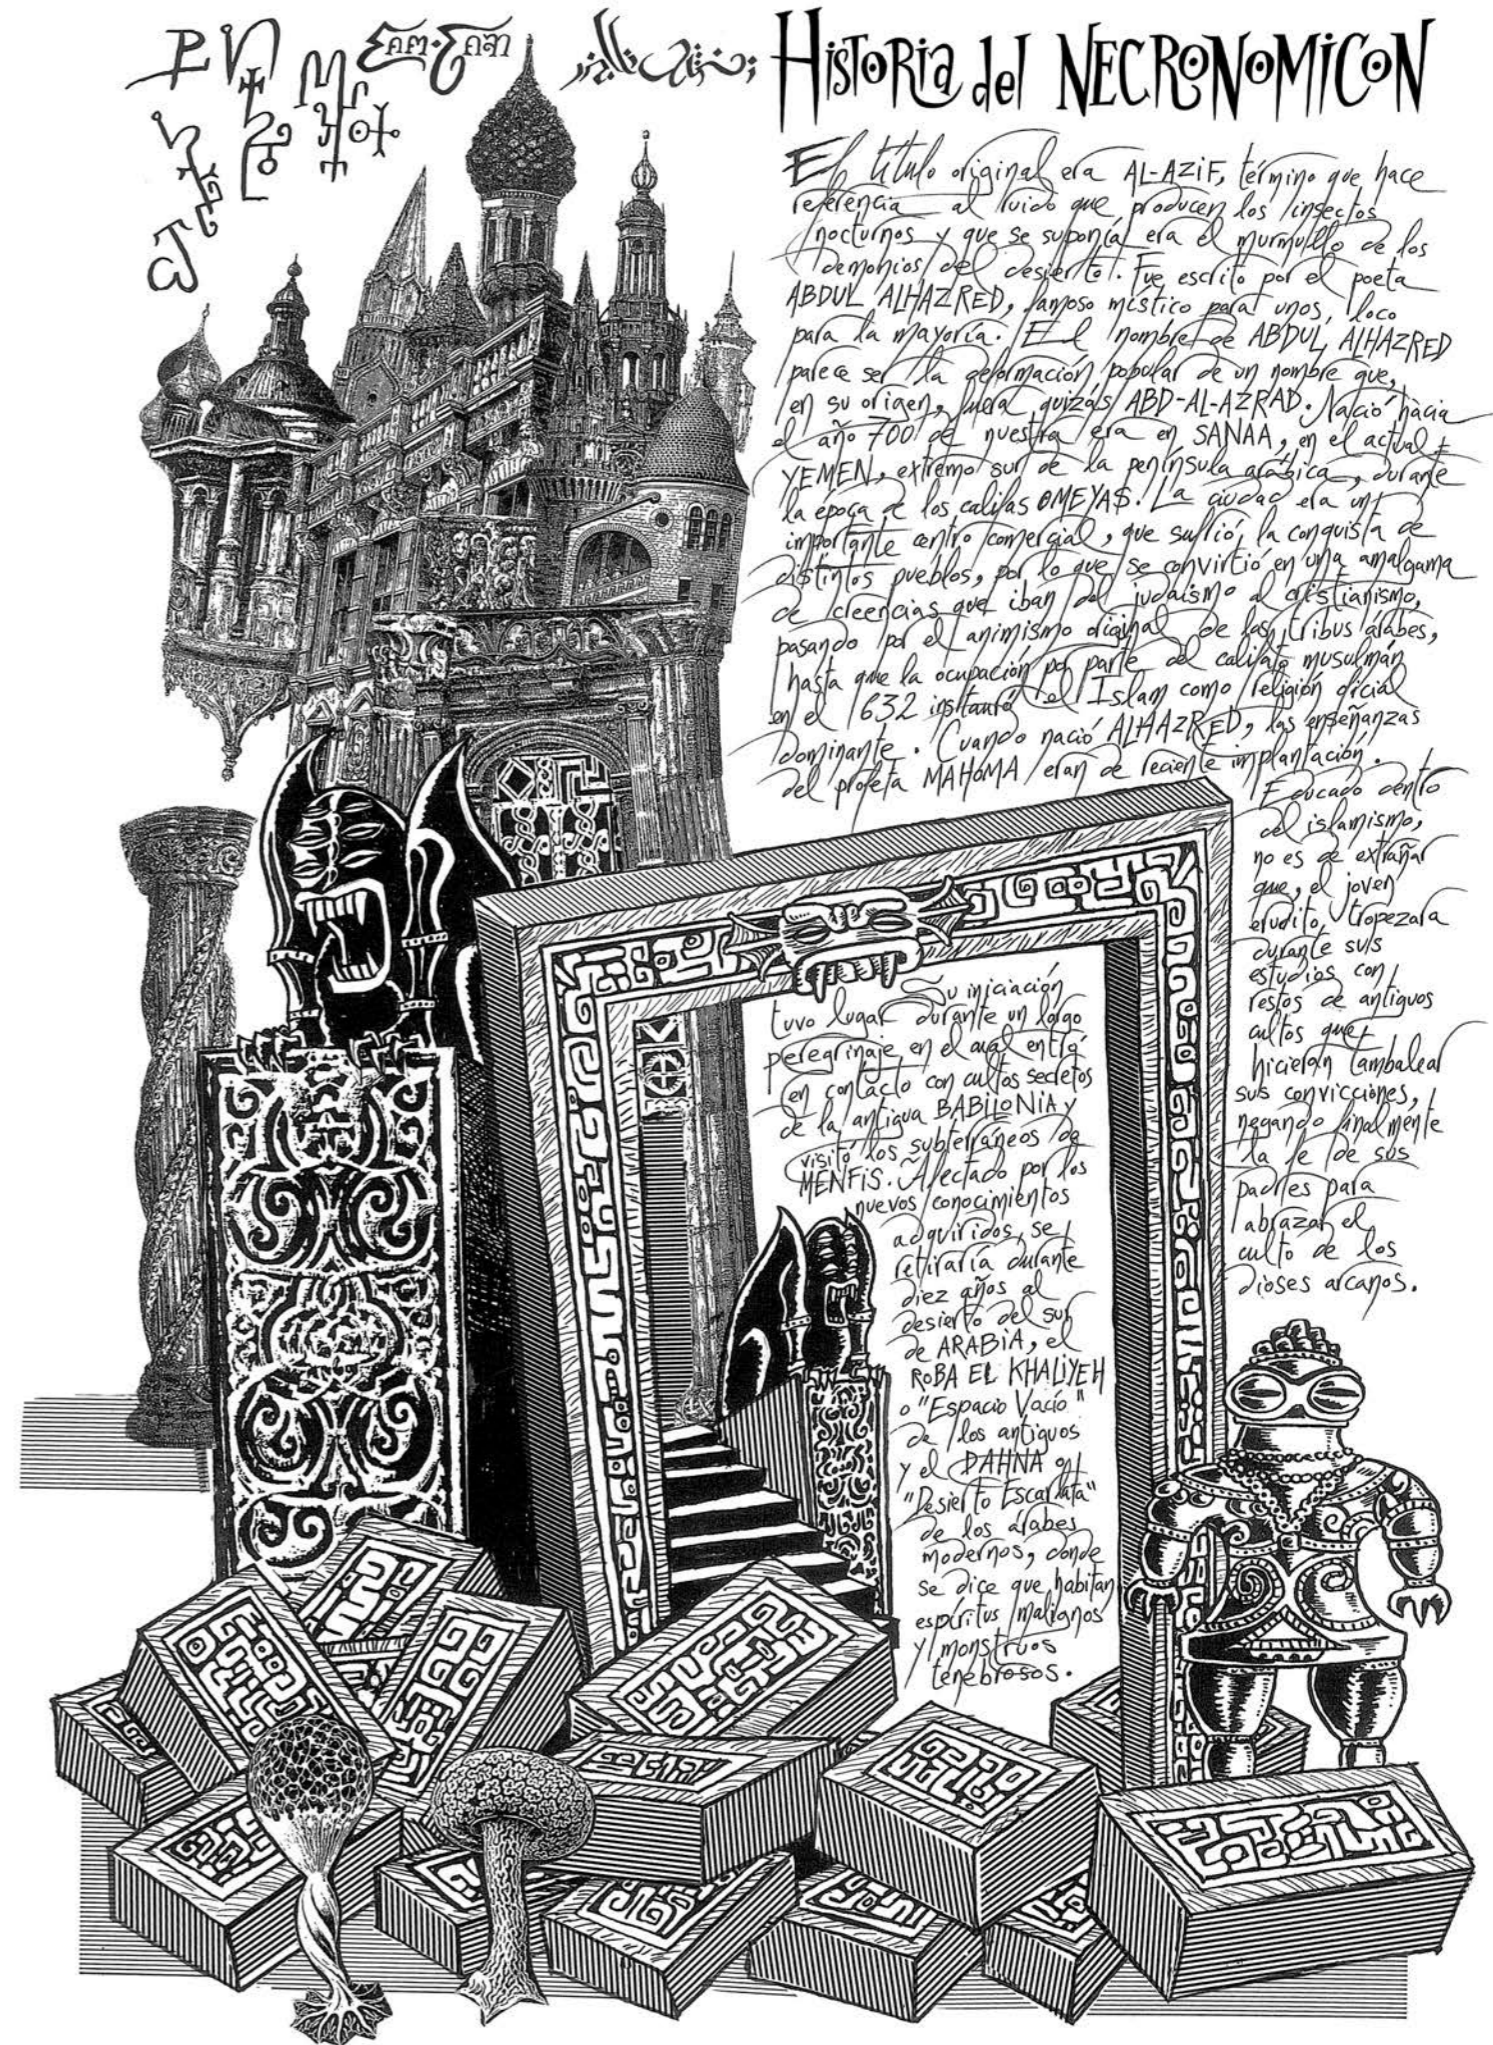 HiSTORia del NECRONOMiCON
El título original era AL-AZiF, término que hace
referencia al ruido que producen los insectos
nocturnos y que se suponía era el murmullo de los
demonios del desierto. Fue escrito por el poeta
ABDUL ALHAZRED, famoso místico para unos, loco
para la mayoría. El nombre de ABDUL ALHAZRED
parece ser la deformación popular de un nombre que,
en su origen, fuera quizás ABD-AL-AZRAD. Nació hacia
el año 700 de nuestra era en SANAA, en el actual
YEMEN, extremo sur de la península arábica, durante
la época de los califas OMEYAS. La ciudad era un
importante centro comercial, que sufrió la conquista de
distintos pueblos, por lo que se convirtió en una amalgama
de creencias que iban del judaísmo al cristianismo,
pasando por el animismo original de las tribus árabes,
hasta que la ocupación por parte del califato musulmán
en el 632 instauró el Islam como religión oficial
dominante. Cuando nació ALHAZRED, las enseñanzas
del profeta MAHOMA eran de reciente implantación.
Educado dentro
del islamismo,
no es de extrañar
que, el joven
erudito, tropezara
durante sus
estudios con
restos de antiguos
cultos que
hicieran tambalear
sus convicciones,
negando finalmente
la fe de sus
padres para
abrazar el
culto de los
dioses arcanos.
Su iniciación
tuvo lugar durante un largo
peregrinaje en el cual entró
en contacto con cultos secretos
de la antigua BABiLONiA y
visitó los subterráneos de
MENFiS. Afectado por los
nuevos conocimientos
adquiridos, se
retiraría durante
diez años al
desierto del sur
de ARABiA, el
ROBA EL KHALiYEH
o "Espacio Vacío"
de los antiguos
y el DAHNA o
"Desierto Escarlata"
de los árabes
modernos, donde
se dice que habitan
espíritus malignos
y monstruos
tenebrosos.